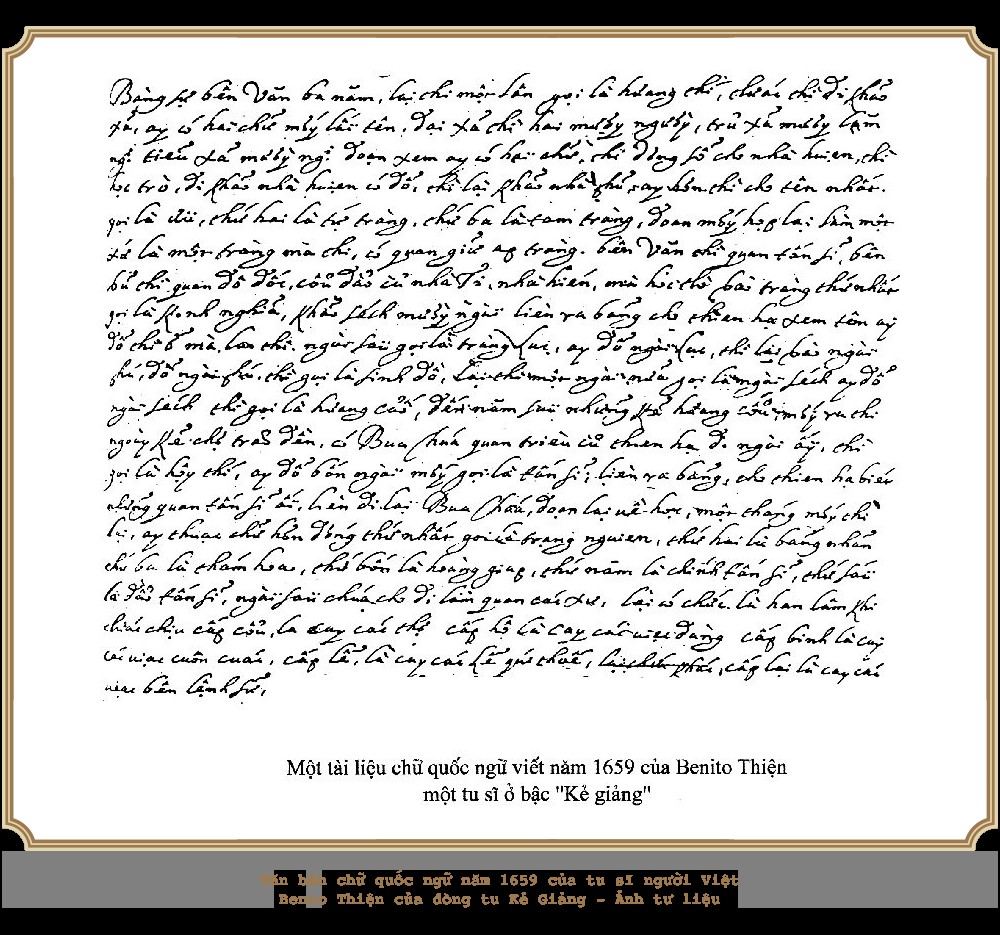 Bảng sử bên Văn ba năm, lại thi một lần gọi là hương thí, thi đi khảo
xã, ay có hai chữ mấy lấy tên, đại xã thì hai mươi người, trũ xã mười lăm
tiểu xã mười đoạn xem ay có hai chữ, thì dâng sổ cho nhà huien, thì
học trò, đi khảo nhà huien có đổ, thì lại khảo nhà phủ, ay hơn thì cho tên nhất
gọi là thứ hai là tứ tràng, thứ ba là tam tràng, đoạn mấy họp lại làm một
là một tràng mà thi, có quan giữ ap tràng. bên Văn thì quan tấn sĩ, bên
thì quan đô đốc, nhà Ti, nhà hiến, mà học thi vào tràng thứ nhất
gọi là kinh nghĩa, khảo sách mười ngài liền ra bảng cho thien hạ xem tên ay
đổ thì mà, lan thi. ngài sau gọi là tràng luc, ay đổ ngài luc, thì lại vào ngài
phú, đổ ngài phú, thì gọi là sinh đồ, lại thi một ngài nữa gọi là ngài sách ay đổ
ngài sách thì gọi là hương cống, đến năm sau những kẻ hương cống mấy ra thi
cho trào đền, có Bua Chúa quan triều cũ thien hạ đi ngài ấy, thì
gọi là hội thí, ay đổ bốn ngài mấy gọi là tấn sĩ, liền ra bảng, cho thien hạ biết
những quan tấn sĩ ấi, liền đi lại Bua Chúa, đoạn lại về học, một tháng mấy thi
lại, ay thuọc chữ hơn dòng thứ nhất gọi là trạng nguien, thứ hai là bảng nhãn
thứ ba là thám hoa, thứ bốn là hoàng giap, thứ năm là chính tấn sĩ, thứ sáu
là đồ tấn sĩ, ngài sau chúa cho đi làm quan các xứ, lại có chức là han lâm
cấp cổu, la cay các thợ cấp hộ là cay các viẹc dạng cấp binh là cay
các viẹc cuôn cuác, cấp lễ, là cay các kẻ giỗ thuế, cấp lại là cay các
viẹc bên lệnh sử,
Một tài liệu chữ quốc ngữ viết năm 1659 của Benito Thiện
một tu sĩ ở bậc "Kẻ giảng"
Văn bản chữ quốc ngữ năm 1659 của tu sĩ người Việt
Bento Thiện của dòng tu Kẻ Giảng - Ảnh tư liệu